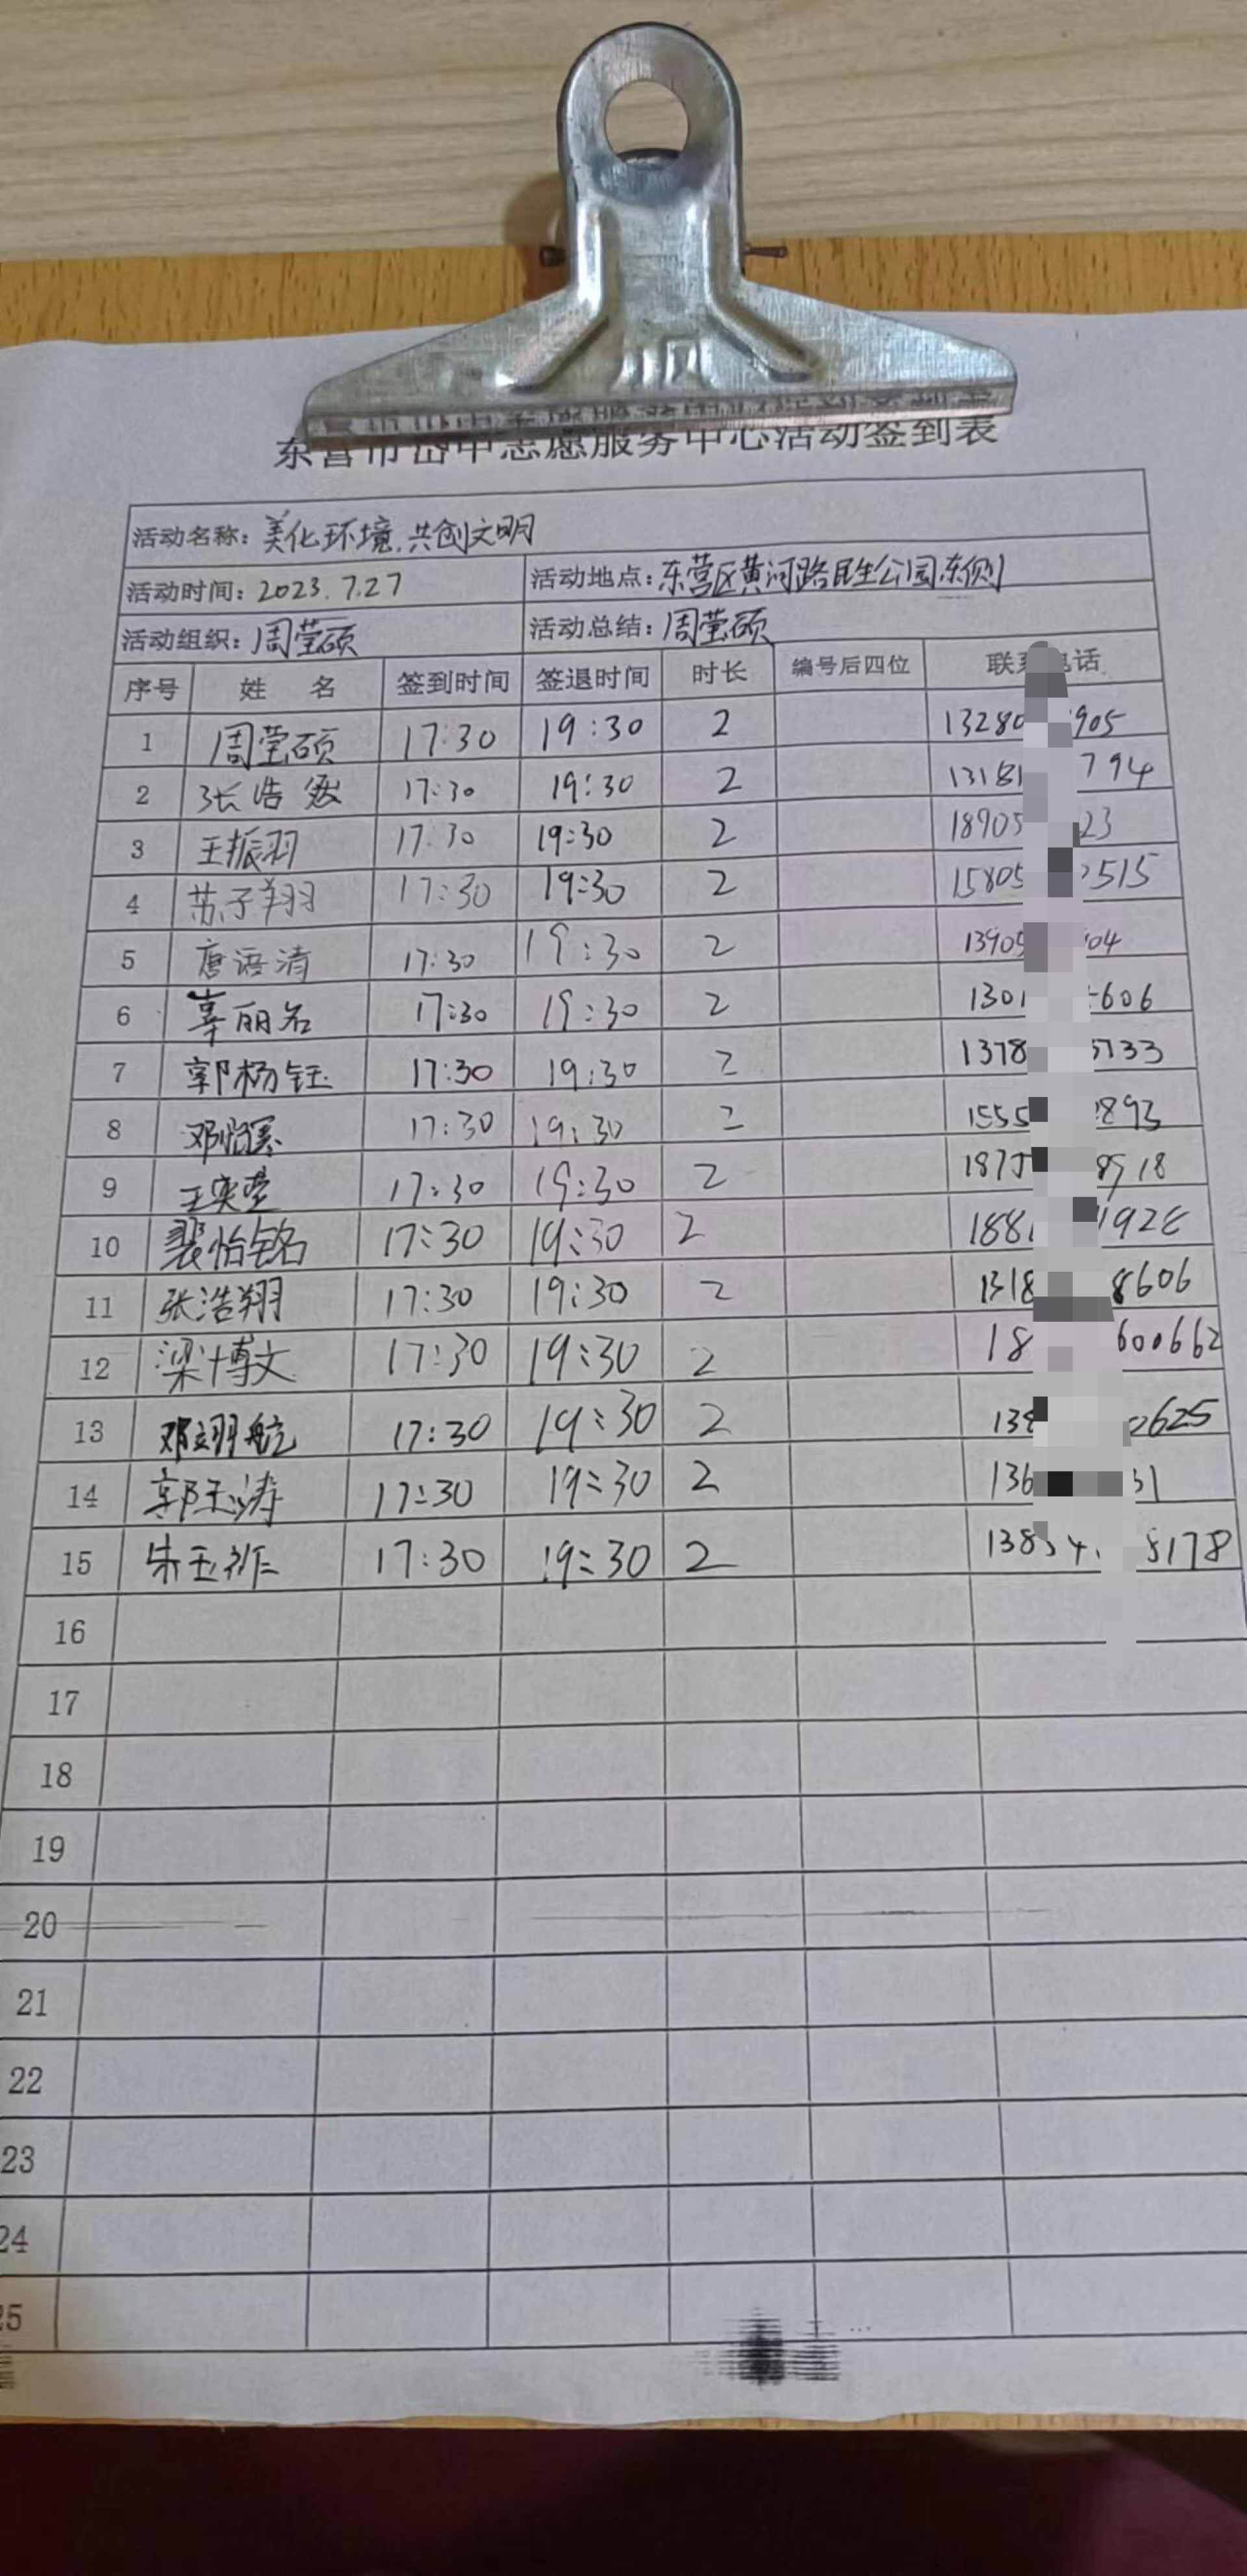 东营市岱中志愿服务中心活动签到表
活动名称：美化环境.共创文明
活动时间：2023.7.27 活动地点：东营区黄河路民生公园东侧
活动组织：周莹硕 活动总结：周莹硕
序号 姓 名 签到时间 签退时间 时长 编号后四位 联系电话
1 周莹硕 17:30 19:30 2 13280 905
2 张浩 17:30 19:30 2 13181 794
3 王振羽 17:30 19:30 2 18905 23
4 苏子翔 17:30 19:30 2 15805 2515
5 唐语清 17:30 19:30 2 13905 04
6 辜丽名 17:30 19:30 2 1301 606
7 郭杨钰 17:30 19:30 2 1378 5733
8 17:30 19:30 2 1555 2893
9 王奕莹 17:30 19:30 2 187 8918
10 裴怡铭 17:30 19:30 2 188 1928
11 张浩翔 17:30 19:30 2 1318 8606
12 梁博文 17:30 19:30 2 18 600662
13 邓翊航 17:30 19:30 2 138 2625
14 郭玉涛 17:30 19:30 2 136 31
15 朱玉 17:30 19:30 2 138 5178
16
17
18
19
20
21
22
23
24
25